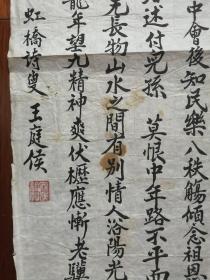 中會後知民樂八秩觴傾念祖恩
述付兒孫 莫恨中年路不平而
無長物山水之間有別情人浴陽光
龍年望九精神爽伏櫪應慚老驥
虹橋詩叟王庭侯